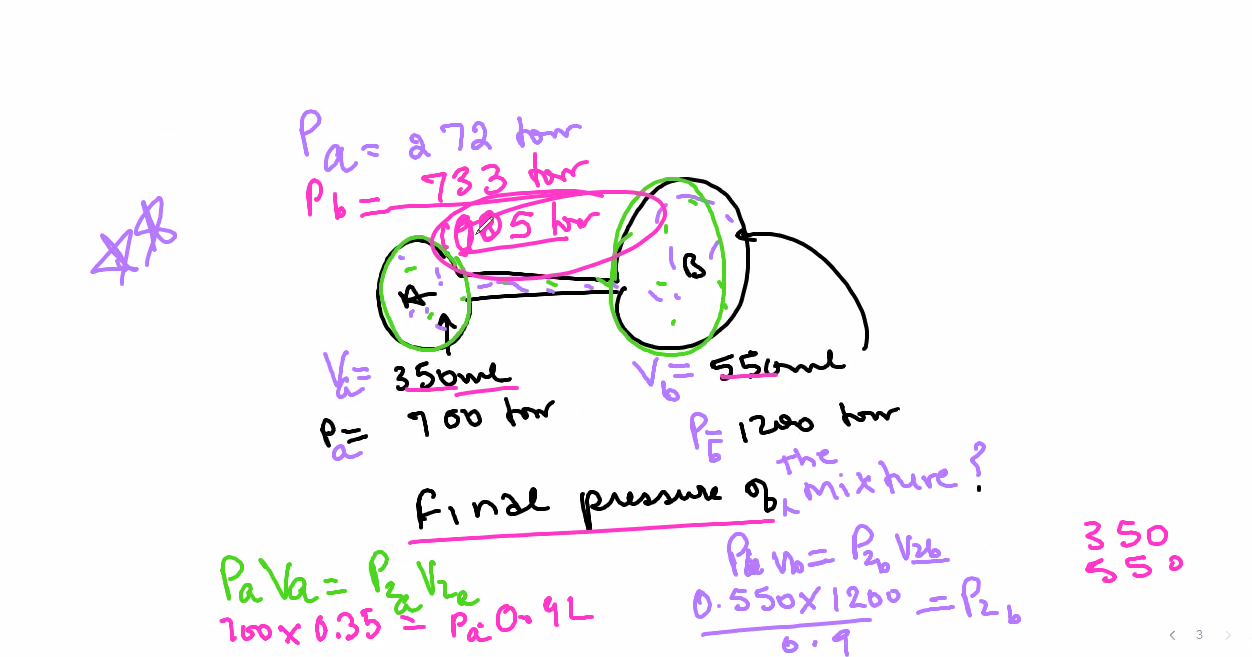 Pa = 272 torr
Pb = 733 torr
1005 torr
A
B
Va = 350ml
Vb = 550ml
Pa = 700 torr
Pb = 1200 torr
Final pressure of the mixture?
PaVa = P2a V2a
700 x 0.35 = Pa. 0.9L
V2b
0.550 x 1200 = P2b
0.9
350
550
3